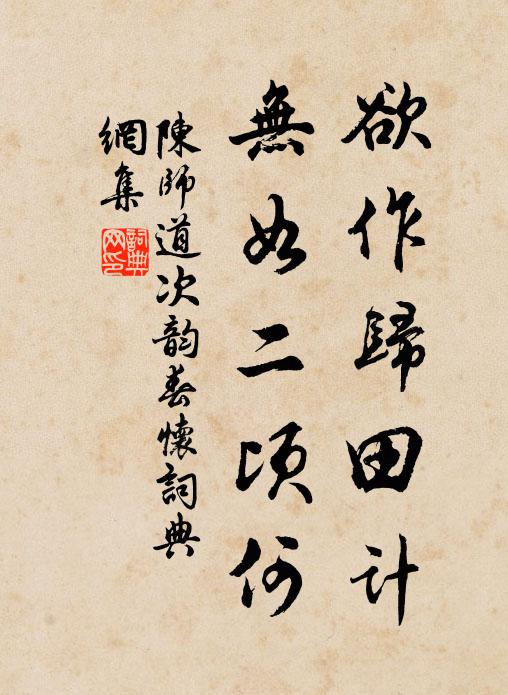 欲作歸田計
無如二頃何
陳師道次韵春懷詞典
網集
詞典
网印